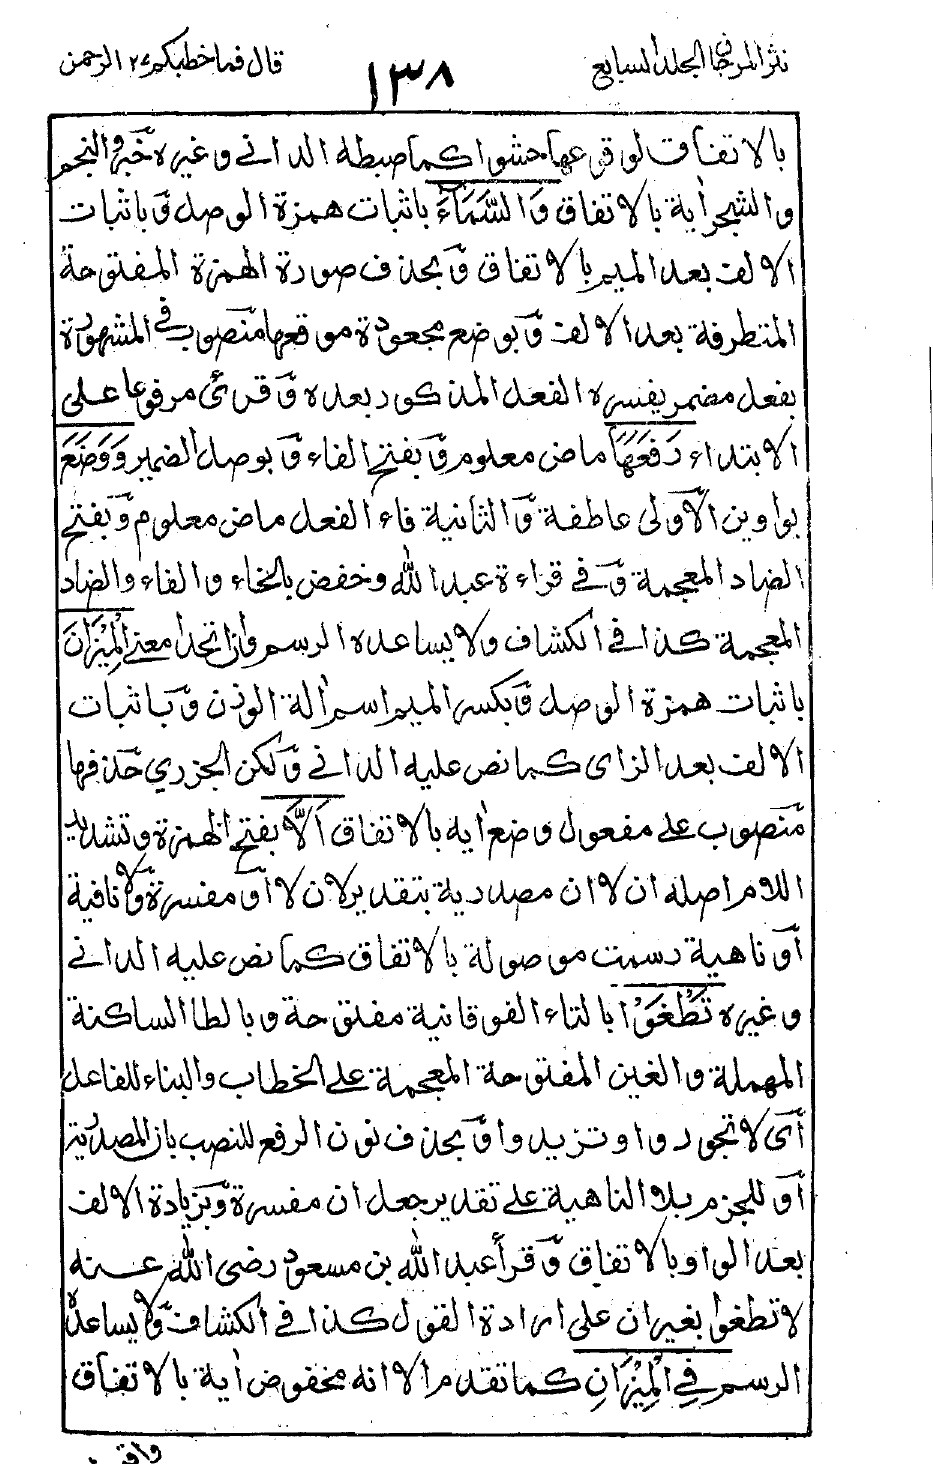 نثر المرجان المجلد السابع
١٣٨
قال فما خطبكم ٢٧ الرحمن
بالاتفاق لوقوعها حشوا كما ضبطه الدانى وغيره خبر والنجم
والشجر اٰية بالاتفاق وَالسَّمَاءَ باثبات همزة الوصل وباثبات
الالف بعد الميم بالاتفاق وبحذف صورة الهمزة المفتوحة
المتطرفة بعد الالف وبوضع مجعودة موقعها منصوب فى المشهورة
بفعل مضمر يفسره الفعل المذكور بعده وقرئ مرفوعا على
الابتداء رَفَعَهَا ماض معلوم وبفتح الفاء وبوصل الضمير وَوَضَعَ
بواوين الاولى عاطفة والثانية فاء الفعل ماض معلوم وبفتح
الضاد المعجمة وفى قراءة عبد الله وخفض بالخاء والفاء والضاد
المعجمة كذا فى الكشاف ولا يساعده الرسم وان اتحدا معنى الْمِيْزَانَ
باثبات همزة الوصل وبكسر الميم اسم اٰلة الوزن وباثبات
الالف بعد الزاى كما نص عليه الدانى ولكن الجزري حذفها
منصوب على مفعول وضع اٰية بالاتفاق اَلَّا بفتح الهمزة وتشديد
اللام اصله ان لا ان مصدرية بتقدير لان لا او مفسرة ولا نافية
او ناهية رسمت موصولة بالاتفاق كما نص عليه الدانى
وغيره تَطْغَوْا بالتاء الفوقانية مفتوحة وبالطا الساكنة
المهملة والغين المفتوحة المعجمة على الخطاب والبناء للفاعل
اى لا تجوروا وتزيدوا وبحذف نون الرفع للنصب بان المصدرية
او للجزم بلا الناهية على تقدير جعل ان مفسرة وبزيادة الالف
بعد الواو بالاتفاق وقرأ عبد الله بن مسعود رضى الله عنه
لا تطغوا بغير ان على ارادة القول كذا فى الكشاف ولا يساعده
الرسم فِي الْمِيْزَانِ كما تقدم الا انه مخفوض اٰية بالاتفاق